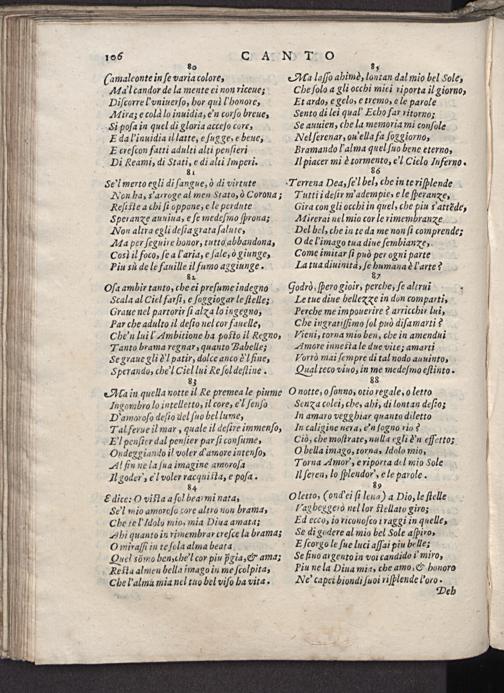 106
CANTO
80
Camaleonte in se varia colore,
Ma'l candor de la mente ei non riceue;
Discorre l'vniuerso, hor quà l'honore,
Mira; e colà lo inuidia, e'n corso breue,
Si posa in quel di gloria acceso core,
E da l'inuidia il latte, e sugge, e beue,
E crescon fatti adulti alti pensieri
Di Reami, di Stati, e di alti Imperi.
81
Se'l merto egli di sangue, ò di virtute
Non ha, s'arroge al men Stato, ò Corona;
Resiste a chi si oppone, e le perdute
Speranze auuiua, e se medesmo sprona;
Non altra egli desia grata salute,
Ma per seguire honor, tutto abbandona,
Così il foco, se a l'aria, e sale, ò giunge,
Più sù de le fauille il fumo aggiunge.
82
Osa ambir tanto, che ei presume indegno
Scala al Ciel farsi, e soggiogar le stelle;
Graue nel partorir si alza lo ingegno,
Par che adulto il desio nel cor fauelle,
Che'n lui l'Ambitione hà posto il Regno,
Tanto brama regnar, quanto Babelle;
Se graue gli è'l patir, dolce anco è'l fine,
Sperando, che'l Ciel lui Re sol destine.
83
Ma in quella notte il Re premea le piume
Ingombro lo intelletto, il core, e'l senso
D'amoroso desio del suo bel lume,
Tal ferue il mar, quale il desire immenso,
E'l pensier dal pensier par si consume,
Ondeggiando il voler d'amore intenso,
Al fin ne la sua imagine amorosa
Il goder, e'l voler racquista, e posa.
84
E dice: O vista a sol bearmi nata,
Se'l mio amoroso core altro non brama,
Che te l'Idolo mio, mia Diua amata;
Ahi quanto in rimembrar cresce la brama;
O mirassi in te sola alma beata
Quel sõmo ben, che'l cor piu p̃gia, & ama;
Resta almen bella imago in me scolpita,
Che l'alma mia nel tuo bel viso ha vita.
85
Ma lasso ahimè, lontan dal mio bel Sole,
Che solo a gli occhi miei riporta il giorno,
Et ardo, e gelo, e tremo, e le parole
Sento di lei qual' Echo far ritorno;
Se auuien, che la memoria mi console
Nel serenar, ou'ella fa soggiorno,
Bramando l'alma quel suo bene eterno,
Il piacer mi è tormento, e'l Cielo Inferno.
86
Terrena Dea, se'l bel, che in te risplende
Tutti i desir m'adempie, e le speranze,
Gira con gli occhi in quel, che piu s'attẽde,
Mirerai nel mio cor le rimembranze
Del bel, che in te da me non si comprende;
O de l'imago tua diue sembianze,
Come imitar si può per ogni parte
La tua diuinità, se humana è l'arte?
87
Godrò, spero gioir, perche, se altrui
Le tue diue bellezze in don comparti,
Perche me impouerire? arricchir lui,
Che ingratissimo sol può disamarti?
Vieni, torna mio ben, che in amendui
Amore innesta le due vite; amarti
Vorrò mai sempre di tal nodo auuinto,
Qual teco viuo, in me medesmo estinto.
88
O notte, o sonno, otio regale, o letto
Senza colei, che, ahi, di lontan desio;
In amaro vegghiar quanto diletto
In caligine nera, e'n sogno rio?
Ciò, che mostrate, nulla egli è'n effetto;
O bella imago, torna, Idolo mio,
Torna Amor', e riporta del mio Sole
Il seren, lo splendor', e le parole.
89
O letto, (ond'ei si leua) a Dio, le stelle
Vagheggerò nel lor stellato giro;
Ed ecco, io riconosco i raggi in quelle,
Se di godere al mio bel Sole aspiro,
E scorgo le sue luci assai piu belle;
Se fino argento in voi candido i' miro,
Piu ne la Diua mia, che amo, & honoro
Ne' capei biondi suoi risplende l'oro.
Deh